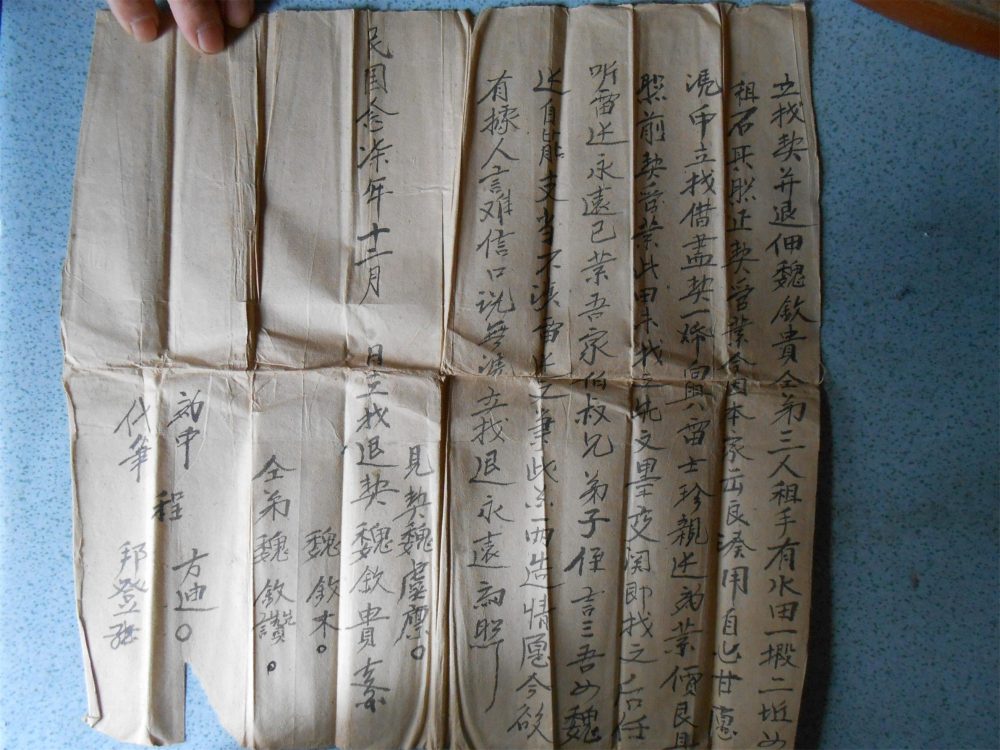 立找契并退佃魏欽貴仝弟三人祖手有水田一塅二坵
租石田照正契管業今因本家缺良湊用自己甘愿
憑中立找借盡契一帋雷士珍親邊為業價良
照前契管業此田未找之先文墨交関即找之后任
听雷邊永遠己業吾家伯叔兄弟子侄言三吾四魏
邊自能支当不涉雷邊之事此系两造情愿今欲
有據人言难信口说無憑立找退永遠為照
民国念柒年十二月 日立找退契魏欽貴
見契魏虞廪
魏欽木
仝弟魏欽讚
為中 程方迪
代筆 邦登